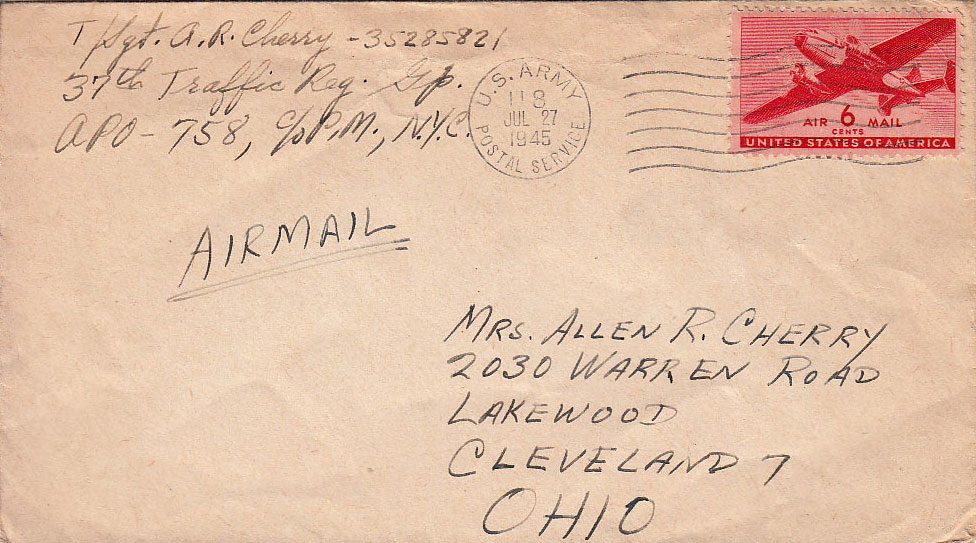 T/Sgt. A.R. Cherry - 35285821
37th Traffic Reg. Gp.
APO - 758, c/o P.M., N.Y.C.
U.S. ARMY
118
JUL 27
1945
POSTAL SERVICE
AIR 6 MAIL
CENTS
UNITED STATES OF AMERICA
AIRMAIL
MRS. ALLEN R. CHERRY
2030 WARREN ROAD
LAKEWOOD
CLEVELAND 7
OHIO